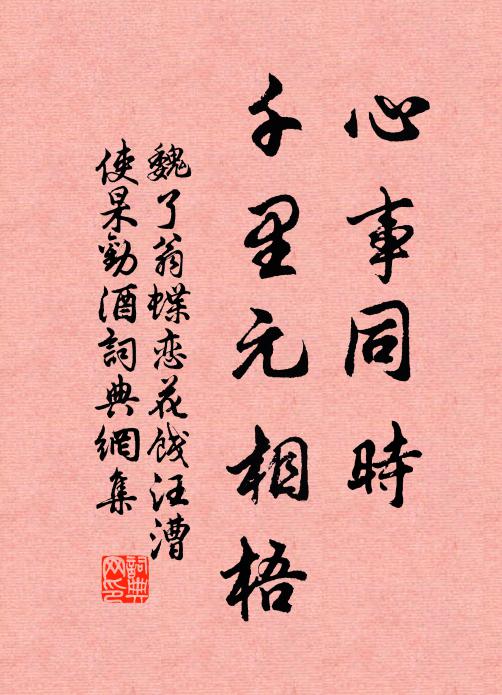 心事同時
千里元相梧
魏了翁蝶恋花餞汪漕
使杲勸酒詞典網集
詞典網印